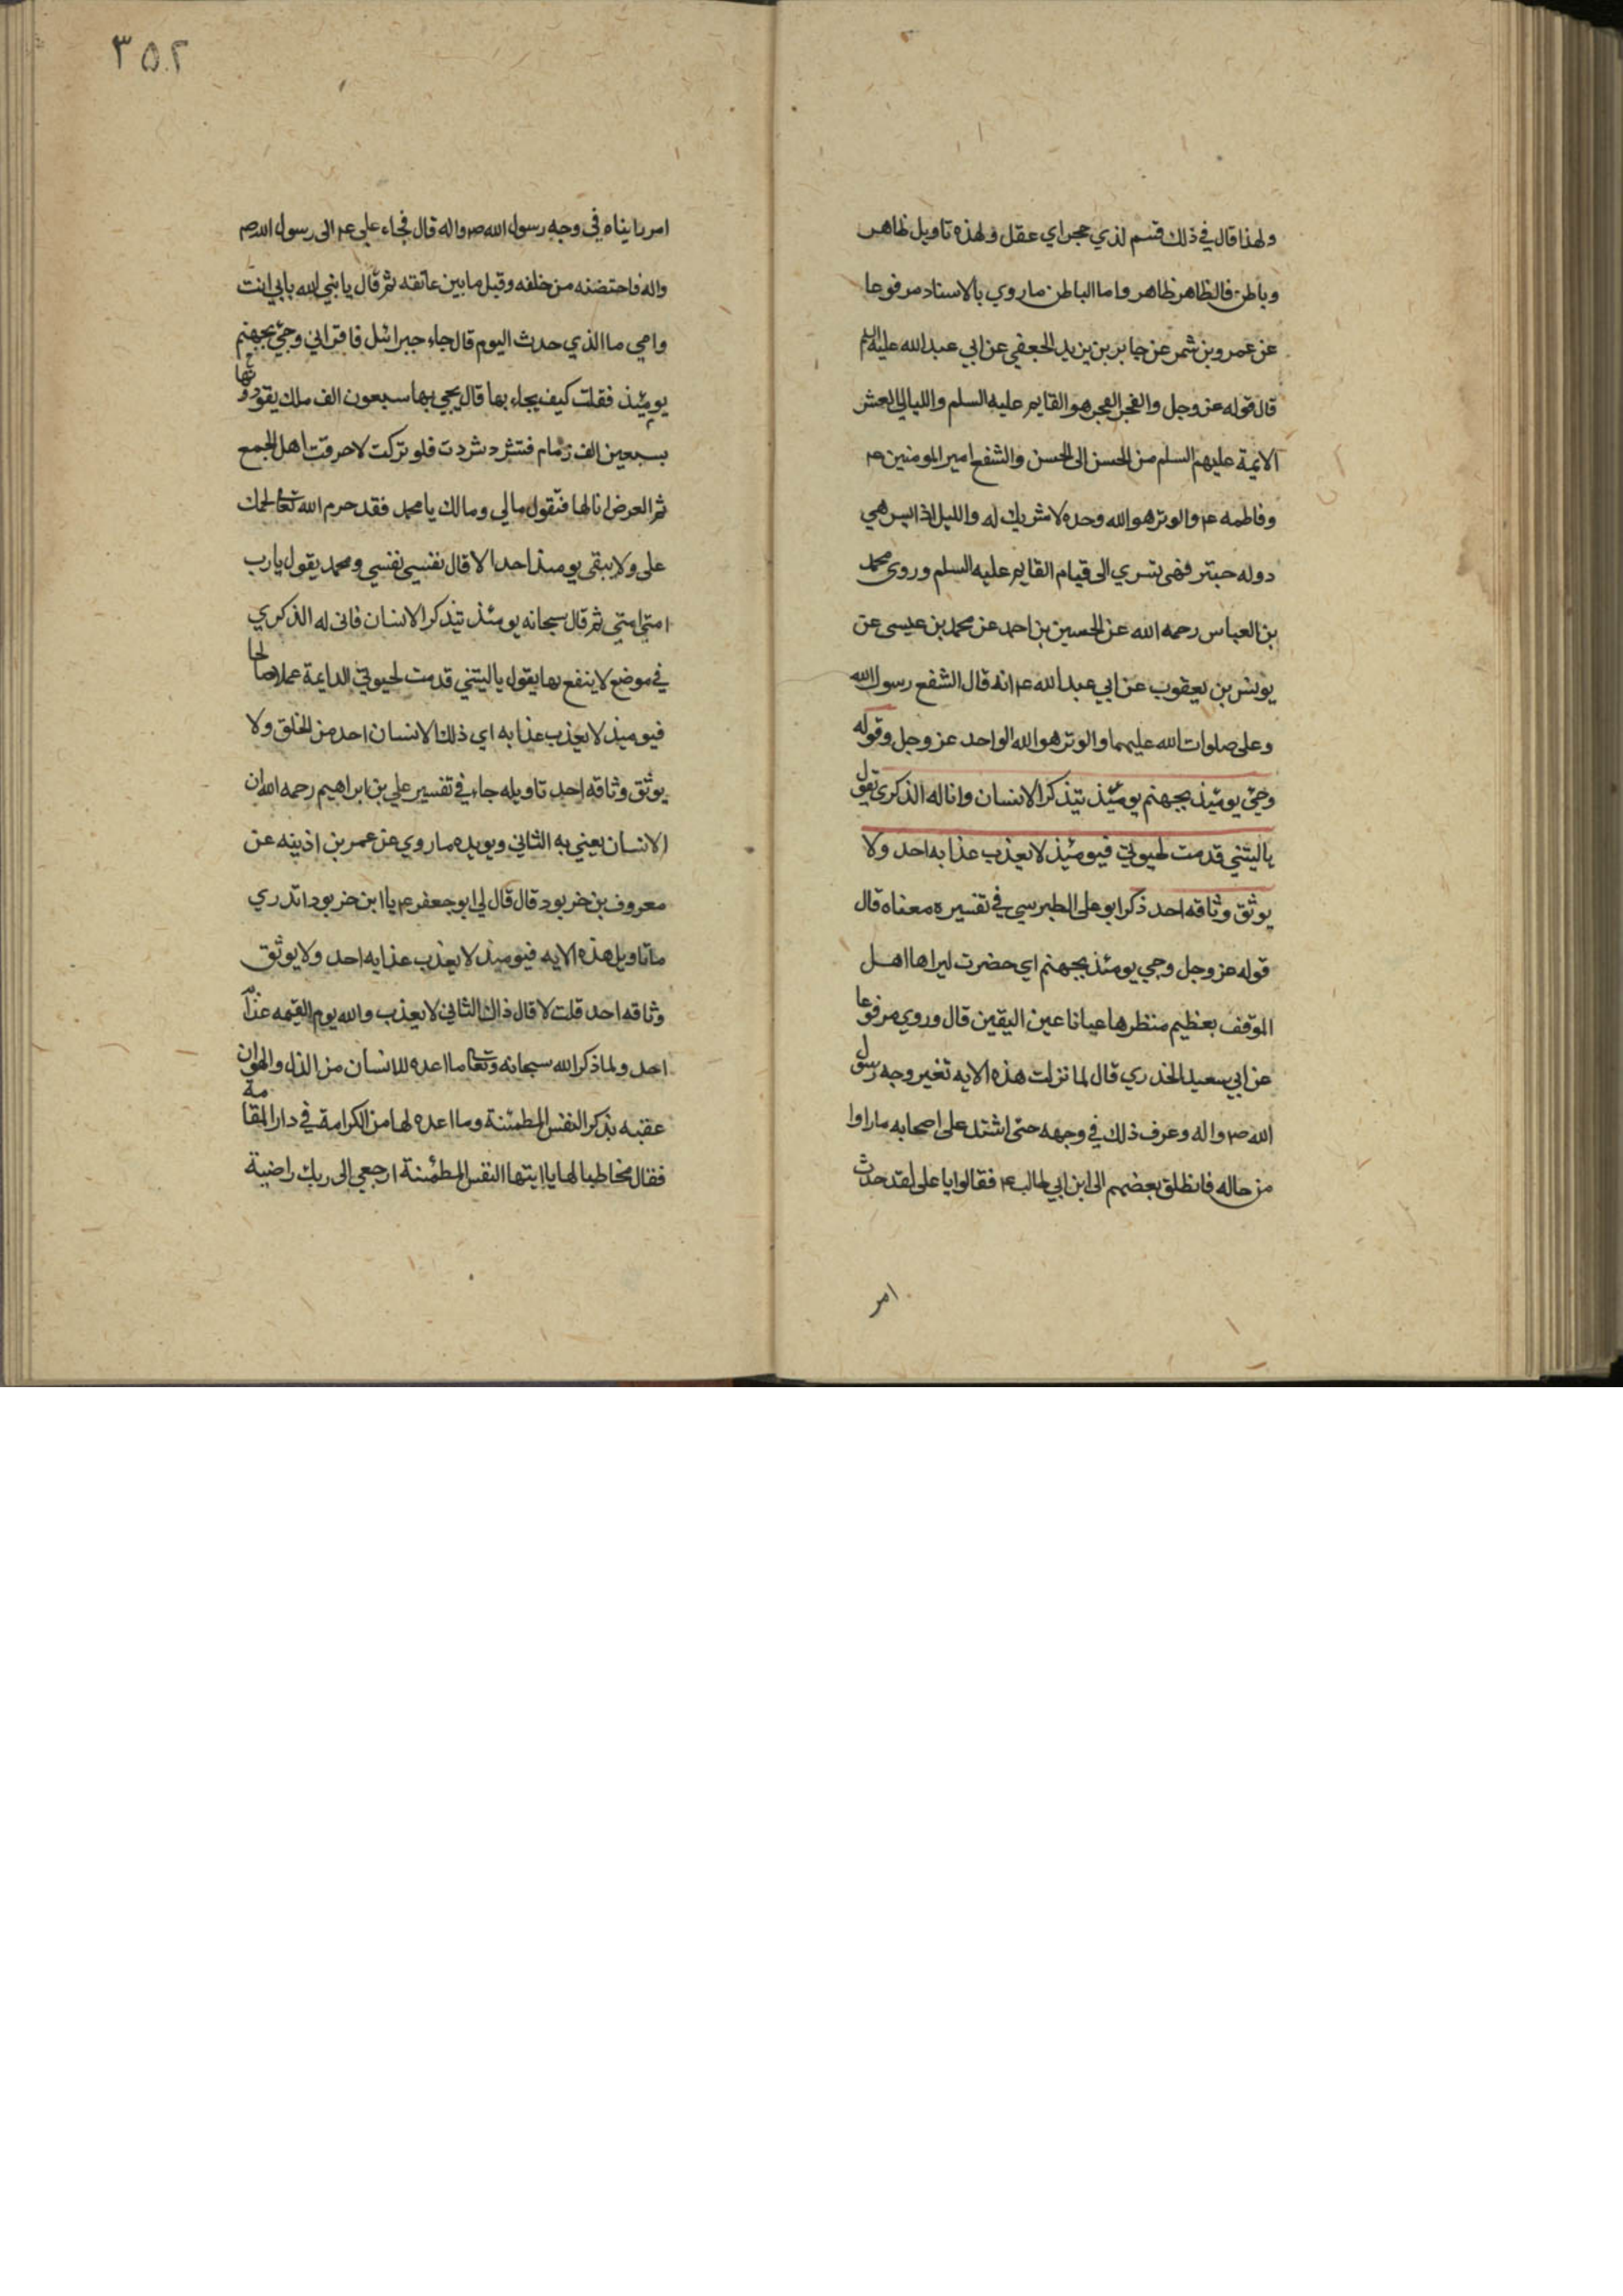 ولهذا قال في ذلك قسم لذي حجر اي عقل ولهذه تاويل ظاهر
وباطن فالظاهر ظاهر واما الباطن ماروي بالاسناد مرفوعا
عن عمرو بن شمر عن جابر بن يزيد الجعفي عن ابي عبد الله عليه السلم
قال قوله عز وجل والفجر الفجر هو القايم عليه السلم والليالي العشر
الايمة عليهم السلم من الحسن الى الحسن والشفع امير المومنين ع
وفاطمه ع والوتر هو الله وحده لا شريك له والليل اذا يسر هي
دوله حبتر فهى تسري الى قيام القايم عليه السلم وروى محمد
بن العباس رحمه الله عن الحسين بن احمد عن محمد بن عيسى عن
يونس بن يعقوب عن ابي عبد الله ع انه قال الشفع رسول الله
وعلى صلوات الله عليهما والوتر هو الله الواحد عز وجل وقوله
وجيء يومئذ بجهنم يومئذ يتذكر الانسان وانا له الذكرى يقول
ياليتني قدمت لحيوتي فيومئذ لا يعذب عذابه احد ولا
يوثق وثاقه احد ذكر ابو على الطبرسي في تفسيره معناه قال
قوله عز وجل وجي يومئذ بجهنم اي حضرت ليراها اهل
الموقف بعظيم منظرها عيانا عين اليقين قال وروي مرفوعا
عن ابي سعيد الخدري قال لما نزلت هذه الايه تغير وجه رسول
الله ص واله وعرف ذلك في وجهه حتى اشتد على اصحابه ماراوا
من حاله فانطلق بعضهم الى ابن ابي طالب ع فقالوا يا على لقد حدث
امر
٣٥٢
امر راينا ه في وجه رسول الله ص واله قال فجاء علي ع الى رسول الله ص
واله فاحتضنه من خلفه وقبل مابين عاتقه ثم قال يا نبي الله بابي انت
وامي ما الذي حدث اليوم قال جاء جبرائل فاقراني وجيء بجهنم
يومئذ فقلت كيف يجاء بها قال يجي بها سبعون الف ملك يقودونها
بسبعين الف زمام فتشرد شردت فلو تركت لاحرقت اهل الجمع
ثم العرض انا لها فتقول مالي ومالك يا محمد فقد حرم الله تعا لحمك
على ولا يبقى يومئذ احد الا قال نفسي نفسي ومحمد يقول يارب
امتي امتي ثم قال سبحانه يومئذ يتذكر الانسان فانى له الذكري
في موضع لا ينفع بها يقول ياليتني قدمت لحيوتي الدايمة عملا صالحا
فيومئذ لا يعذب عذابه اي ذلك الانسان احد من الخلق ولا
يوثق وثاقه احد تاويله جاء في تفسير علي بن ابراهيم رحمه الله ان
الانسان يعني به الثاني ويويده ماروي عن عمر بن اذينه عن
معروف بن خربود قال قال لي ابو جعفر ع يا ابن خربود اتدري
ماتاويل هذه الايه فيومئذ لا يعذب عذابه احد ولا يوثق
وثاقه احد قلت لا قال ذاك الثاني لا يعذب والله يوم القيمه عذابه
احد ولما ذكر الله سبحانه وتعا ما اعده للانسان من الذل والهوان
عقبه بذكر النفس المطمئنة وما اعده لها من الكرامة في دار المقامة
فقال مخاطبا لها يا ايتها النفس المطمئنة ارجعي الى ربك راضية